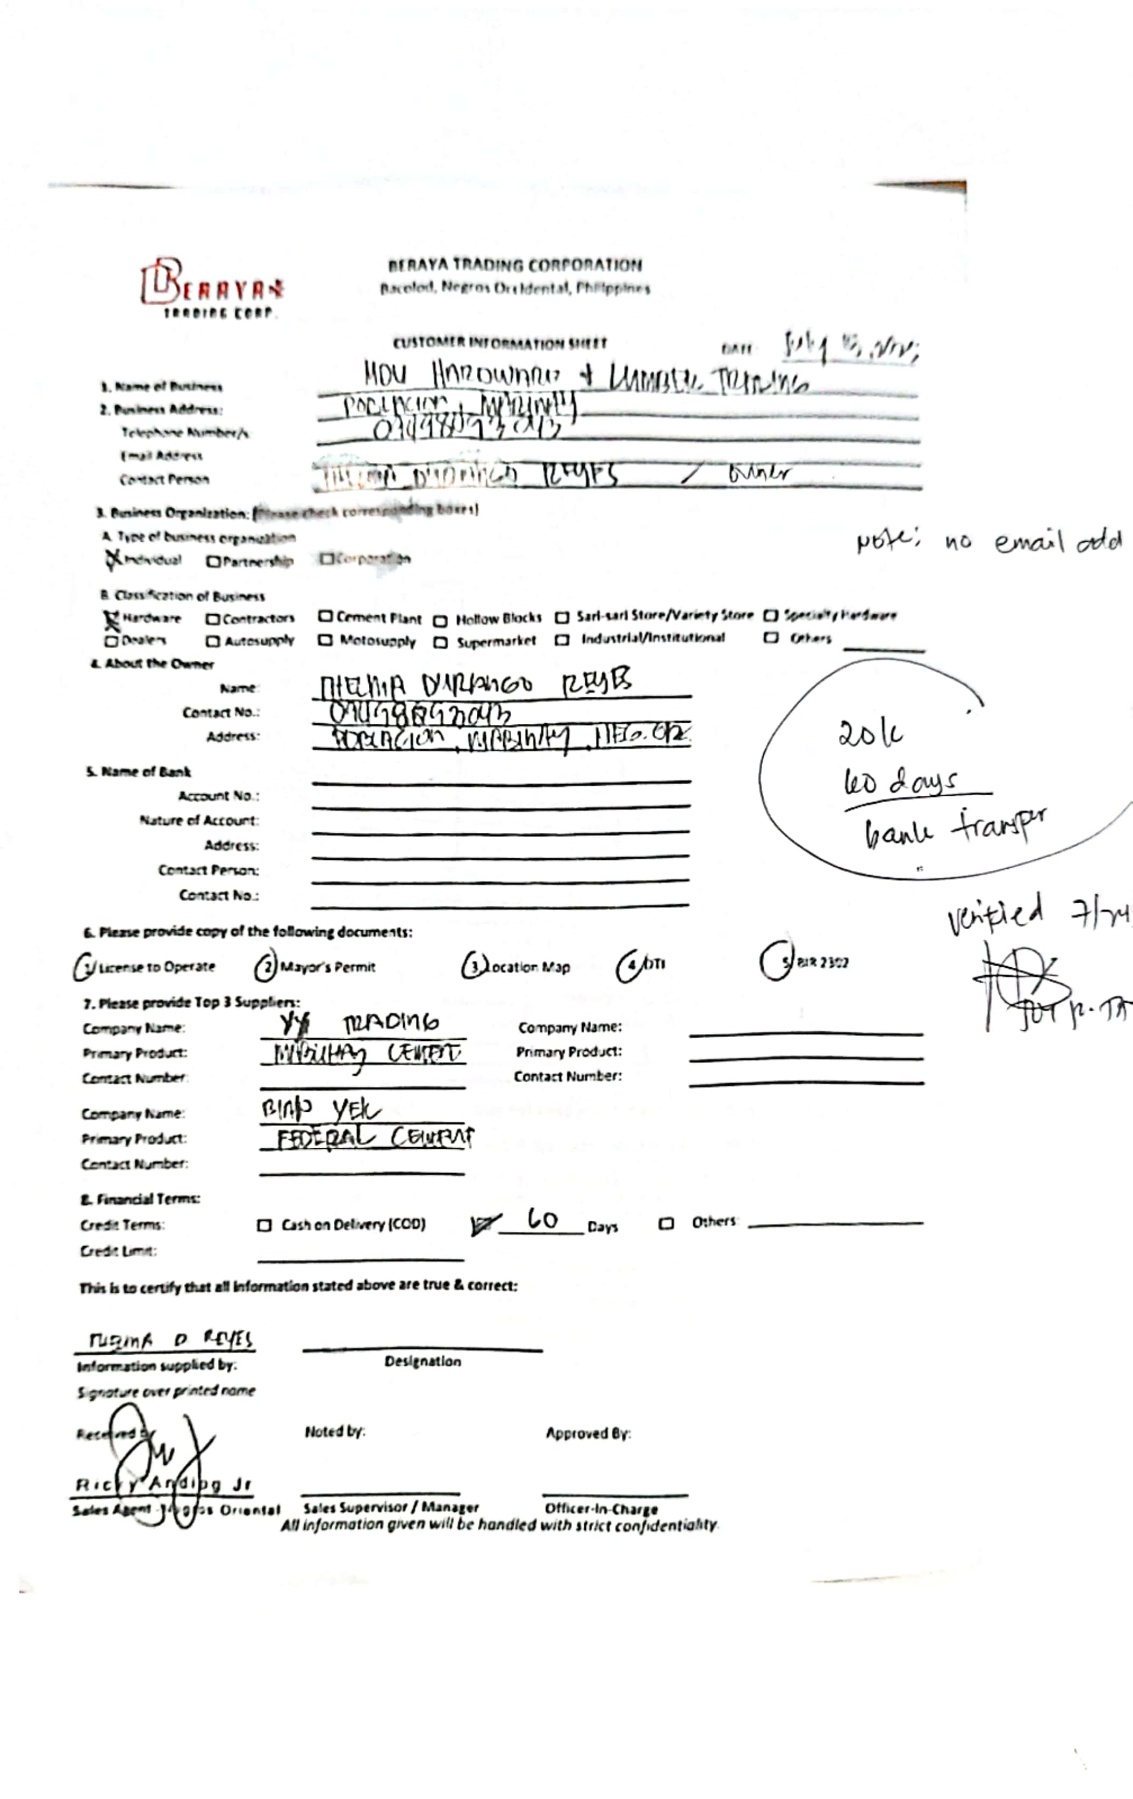 BERAYA
TRADING CORP.
BERAYA TRADING CORPORATION
Bacolod, Negros Occidental, Philippines
CUSTOMER INFORMATION SHEET
DATE July
1. Name of Business HARDWARE & LUMBER TRADING
2. Business Address: POBLACION, MABINAY
Telephone Number/s
Email Address
Contact Person THELMA DURANGO REYES / owner
3. Business Organization: (Please check corresponding boxes)
A. Type of business organization
Note: no email add
Individual Partnership Corporation
B. Classification of Business
Hardware Contractors Cement Plant Hollow Blocks Sari-sari Store/Variety Store Specialty Hardware
Dealers Autosupply Motosupply Supermarket Industrial/Institutional Others
4. About the Owner
Name: THELMA DURANGO REYES
Contact No.:
Address: POBLACION, MABINAY, NEG. OR.
20k
60 days
bank transper
5. Name of Bank
Account No.:
Nature of Account:
Address:
Contact Person:
Contact No.:
verified 7/24
6. Please provide copy of the following documents:
1 License to Operate 2 Mayor's Permit 3 Location Map 4 DTI 5 BIR 2302
7. Please provide Top 3 Suppliers:
Company Name: YY TRADING Company Name:
Primary Product: MABUHAY CEMENT Primary Product:
Contact Number: Contact Number:
Company Name: BIAP YEK
Primary Product: FEDERAL CEMENT
Contact Number:
8. Financial Terms:
Credit Terms: Cash on Delivery (COD) 60 Days Others:
Credit Limit:
This is to certify that all information stated above are true & correct:
THELMA D REYES
Information supplied by: Designation
Signature over printed name
Received by Noted by: Approved By:
Ricky Anding Jr
Sales Agent Negros Oriental Sales Supervisor / Manager Officer-In-Charge
All information given will be handled with strict confidentiality.